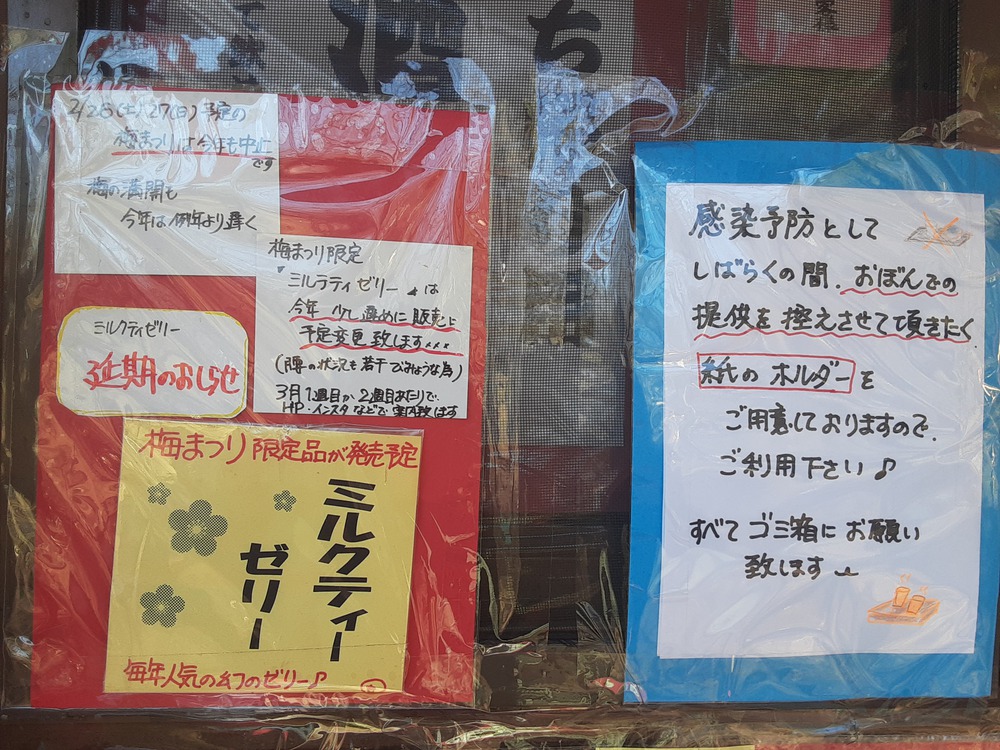 酒
ち
2/26(土)27(日)予定の
梅まつりは今年も中止
です
梅の満開も
今年は例年より遅く
梅まつり限定
ミルクティゼリーは
今年 少し遅めに販売と
予定変更致します...
の状況も若干びみょうな為)
3月1週目か2週目あたりで
HP・インスタなどで
ミルクティゼリー
延期のおしらせ
梅まつり限定品が発売予定
ミルクティー
ゼリー
毎年人気の幻のゼリー♪
感染予防として
しばらくの間、おぼんでの
提供を控えさせて頂きたく
紙のホルダーを
ご用意しておりますので、
ご利用下さい♪
すべてゴミ箱にお願い
致します